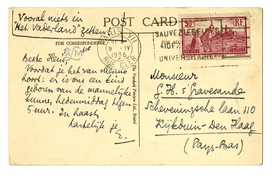 Vooral niets in
"Het Vaderland" zetten!
POST CARD
FOR CORRESPONDENCE
Beste Henri,
Voordat je het van nieuws
hoort: er is ons een kind
geboren van de mannelijke
kunne, hedenmiddag half
5 uur. In haast
hartelijk je
E.
1935
SAUVEZ
UNIVERSITAIRE
RF
Monsieur
G. H. 's Gravesande
Scheveningsche laan 110
Kijkduin - Den Haag
(Pays-Bas)